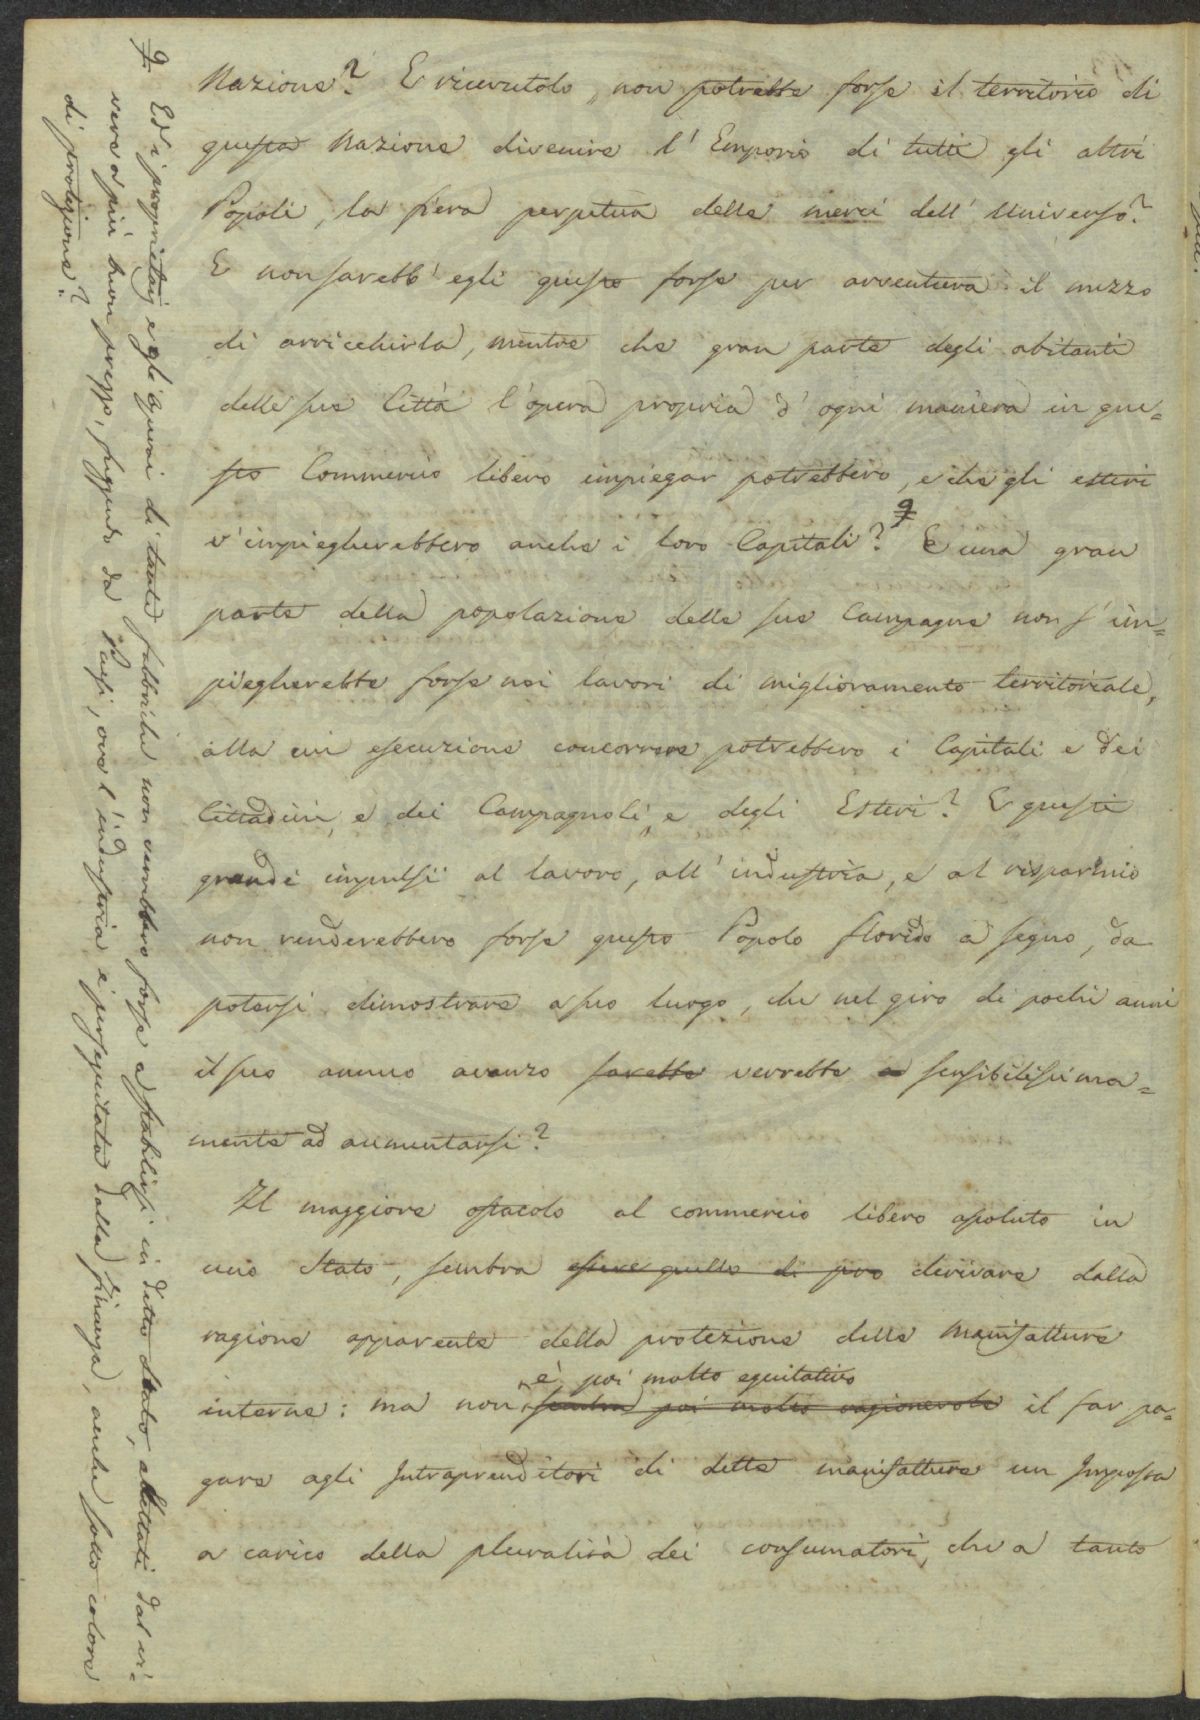 Nazione? E ricevutolo, non potrebbe forse il territorio di
questa Nazione divenire l'Emporio di tutti gli altri
Popoli, la fiera perpetua delle merci dell'Universo?
E non sarebb'egli questo forse per avventura il mezzo
di arricchirla, mentre che gran parte degli abitanti
delle sue Città l'opera propria d'ogni maniera in que=
sto Commercio libero impiegar potrebbero, e che gli esteri
v'impiegherebbero anche i loro Capitali? E una gran
parte della popolazione delle sue Campagne non s'im=
piegherebbe forse nei lavori di miglioramento territoriale,
alla cui esecuzione concorrere potrebbero i Capitali e dei
Cittadini, e dei Campagnoli, e degli Esteri? E questi
grandi impulsi al lavoro, all'industria, e al risparmio
non renderebbero forse questo Popolo florido a segno, da
potersi dimostrare a suo luogo, che nel giro di pochi anni
il suo annuo avanzo sarebbe verrebbe a sensibilissima=
mente ad aumentarsi?
Il maggiore ostacolo al commercio libero assoluto in
uno Stato, sembra essere quello di pro derivare dalla
ragione apparente della protezione delle Manifatture
è poi molto equitativo
interne: ma non sembra poi molto ragionevole il far pa=
gare agli Intraprenditori di dette manifatture un Imposta
a carico della pluralità dei consumatori, che a tanto
Ed i proprietarj e gli Operai di tante fabbriche non verrebbero forse a stabilirsi in detto Stato, allettati dal vi=
vere a più buon prezzo, fuggendo da Paesi, ove l'industria è perseguitata dalla finanza, anche sotto colore
di protezione?